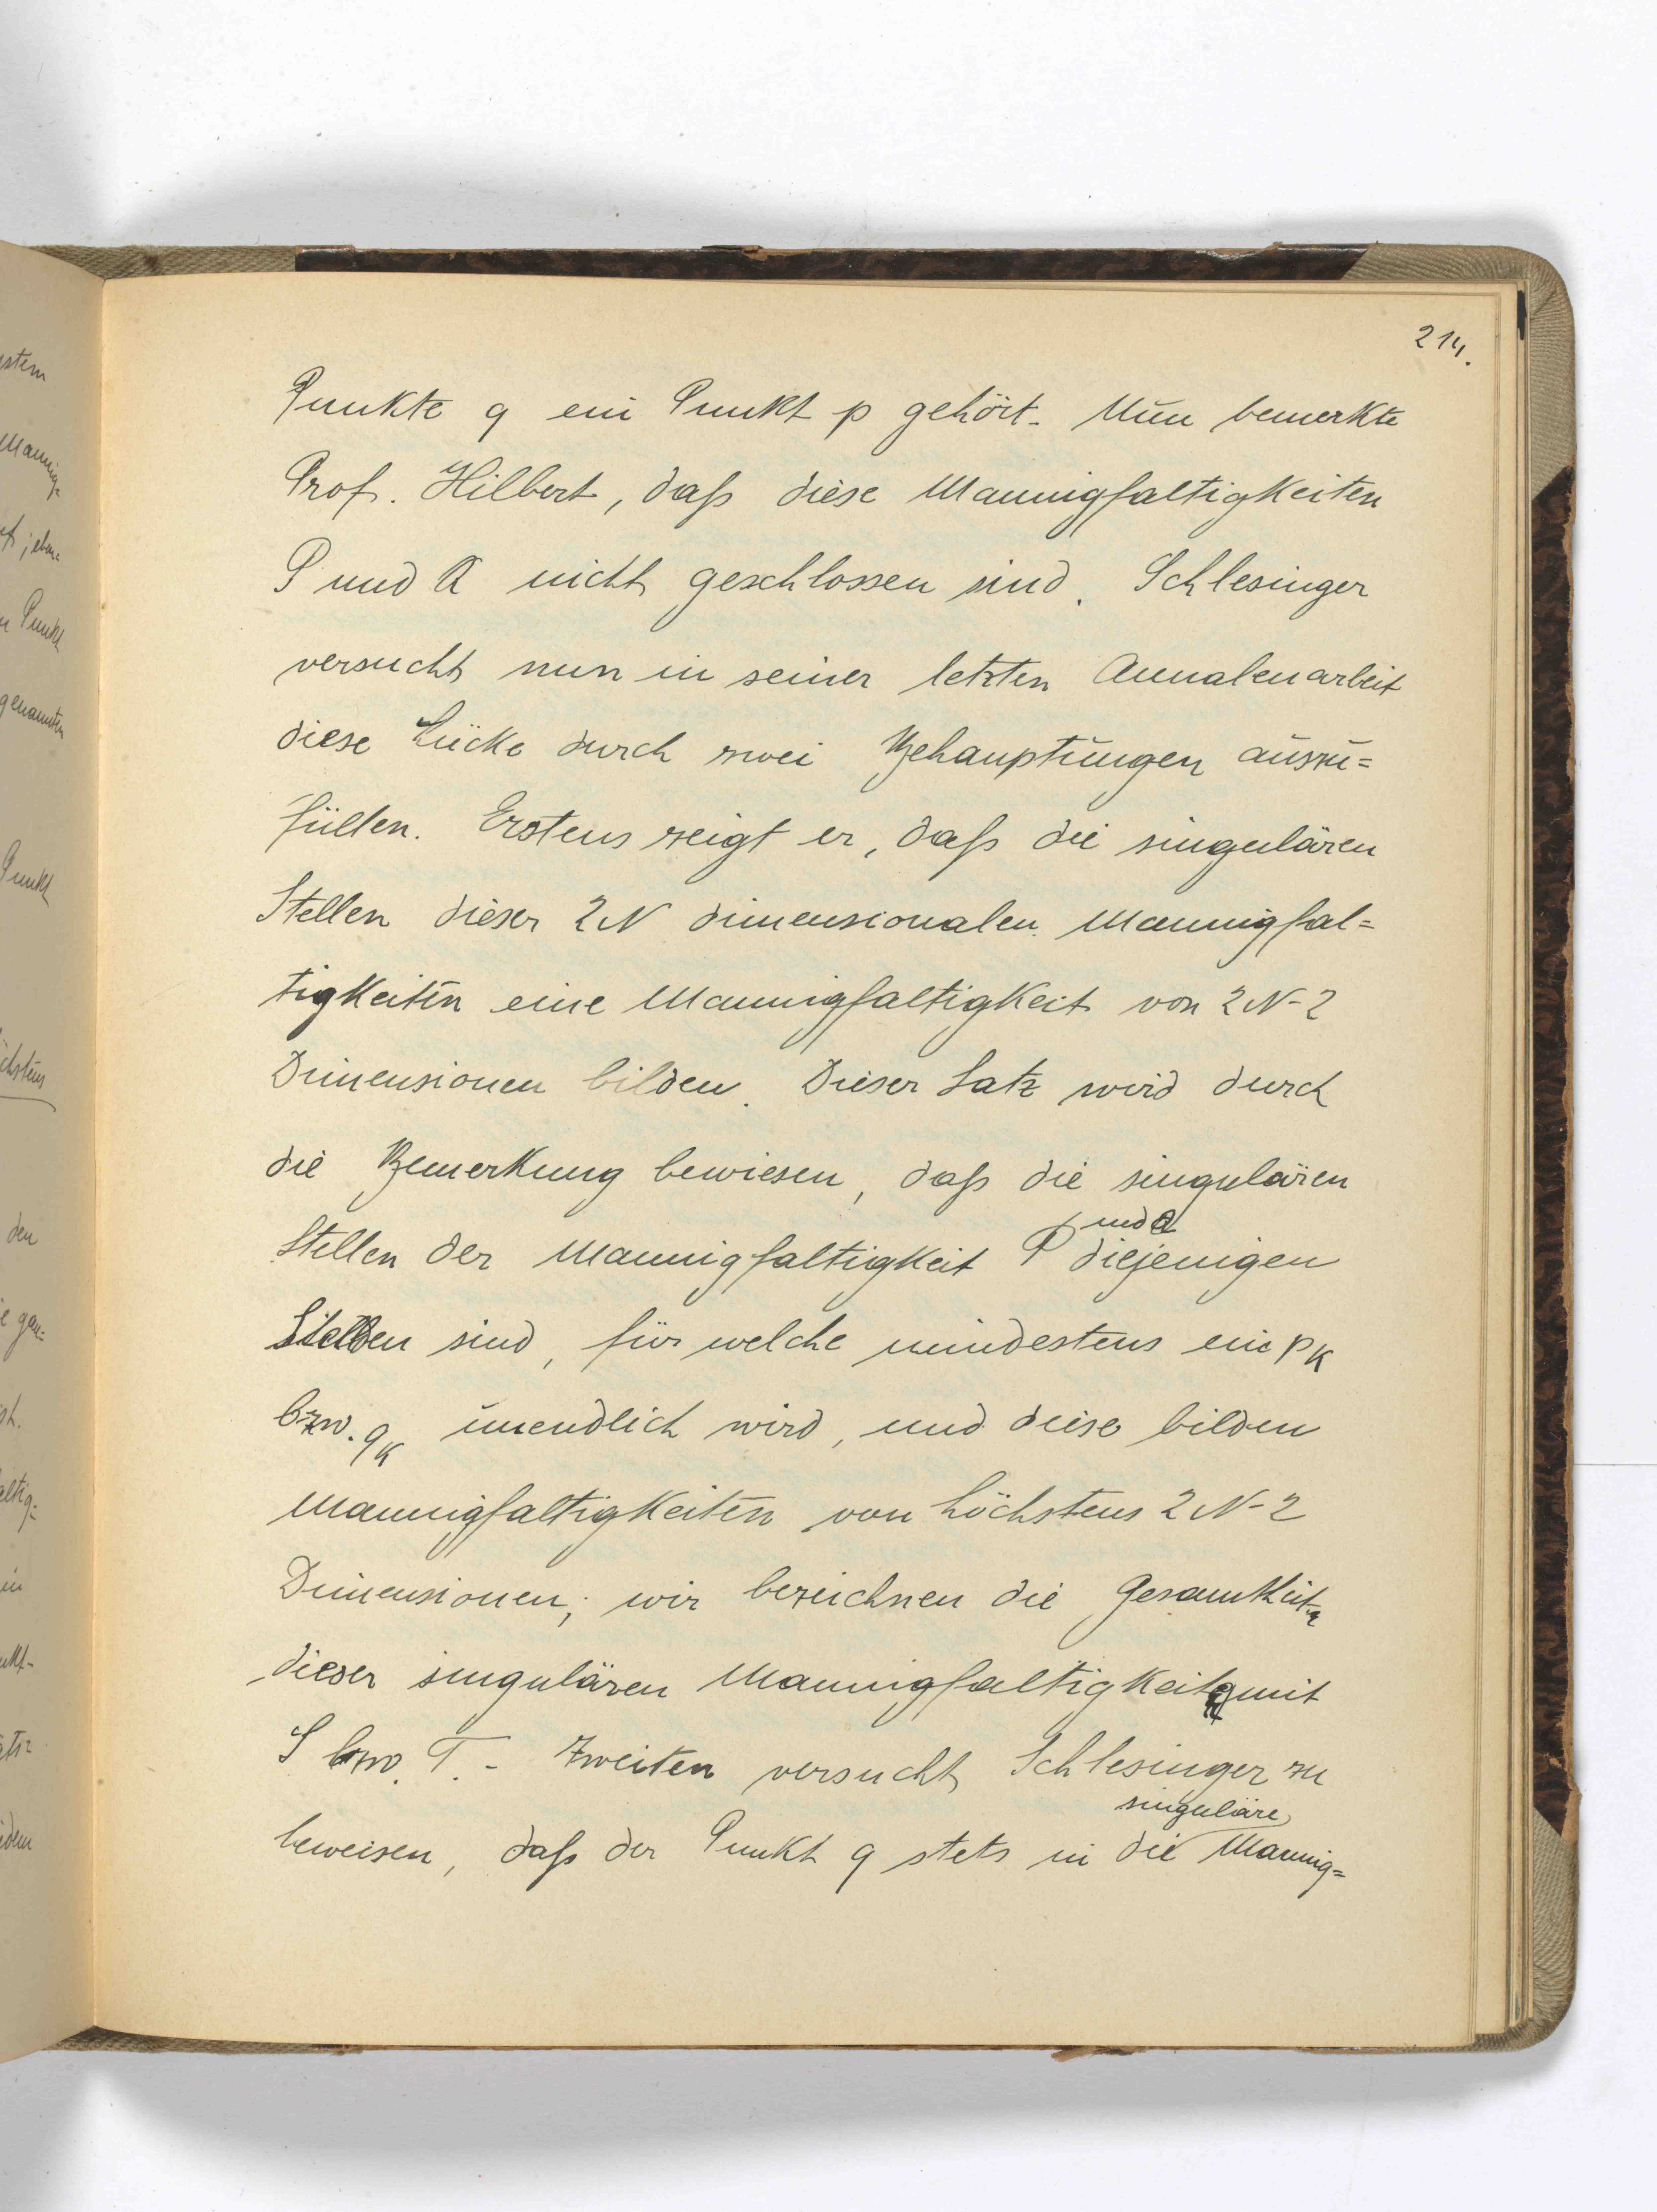 214.
Punkte q ein Punkt p gehört. Nun bemerkte
Prof. Hilbert, daß diese Mannigfaltigkeiten
P und Q nicht geschlossen sind. Schlesinger
versucht nun in seiner letzten Annalenarbeit
diese Lücke durch zwei Behauptungen auszu=
füllen. Erstens zeigt er, daß die singulären
Stellen dieser 2N dimensionalen Mannigfal=
tigkeiten eine Mannigfaltigkeit von 2N-2
Dimensionen bilden. Dieser Satz wird durch
die Bemerkung bewiesen, daß die singulären
und Q
Stellen der Mannigfaltigkeit P diejenigen
Stellen sind, für welche mindestens ein pK
bzw. qK unendlich wird, und diese bilden
Mannigfaltigkeiten von höchstens 2N-2
Dimensionen; wir bezeichnen die Gesamtheiten
dieser singulären Mannigfaltigkeiten mit
S bzw. T. - Zweiten versucht Schlesinger zu
singuläre
beweisen, daß der Punkt q stets in die Mannig=
stem
Mannig=
Punkt
genannten
Punkt
chstens
den
altig=
in